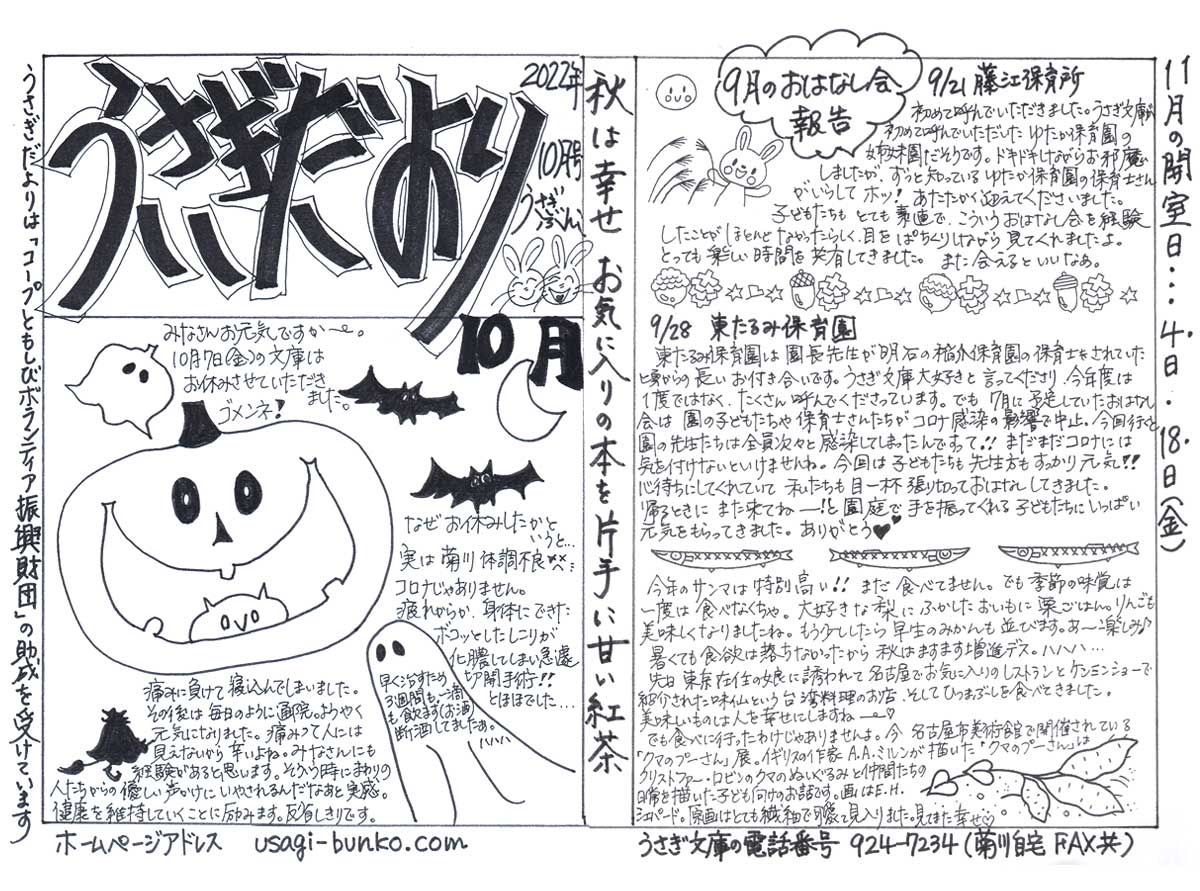 うさぎだより
2022年
10月号
うさぎぶんこ
10月
みなさんお元気ですか〜。
10月7日(金)の文庫は
お休みさせていただきました。
ゴメンネ!
なぜお休みしたかと
いうと…
実は菊川体調不良××…
コロナじゃありません。
疲れからか、身体にできた
ボコッとしたしこりが
化膿してしまい急遽
切開手術!!
とほほでした…
早く治すため
3週間も一滴
も飲まず(お酒)
断酒してましたぁ。
ハハハ
痛みに負けて寝込んでしまいました。
その後は毎日のように通院。ようやく
元気になりました。痛みって人には
見えないから辛いよね。みなさんにも
経験があると思います。そういう時にまわりの
人たちからの優しい声かけにいやされるんだなあと実感。
健康を維持していくことに励みます。反省しきりです。
うさぎだよりは「コープともしびボランティア振興財団」の助成を受けています
ホームページアドレス usagi-bunko.com
秋は幸せ お気に入りの本を片手に甘い紅茶
9月のおはなし会
報告
9/21 藤江保育所
初めて呼んでいただきました。うさぎ文庫が
初めて呼んでいただいた ゆたか保育園の
姉妹園だそうです。ドキドキしながらお邪魔
しましたが、ずっと知っている ゆたか保育園の保育士さん
がいらしてホッ! あたたかく迎えてくださいました。
子どもたちも とても素直で、こういうおはなし会を経験
したことが ほとんどなかったらしく、目をぱちくりしながら見てくれましたよ。
とっても楽しい時間を共有してきました。 また会えるといいなぁ。
9/28 東たるみ保育園
東たるみ保育園は 園長先生が明石の保育園の保育士をされていた
頃からの長いお付き合いです。うさぎ文庫大好きと言ってくださり、今年度は
1度ではなく、たくさん呼んでくださっています。でも 7月に予定していたおはなし
会は 園の子どもたちや保育士さんたちがコロナ感染の影響で中止。今回行くと
園の先生たちは全員次々と感染してしまったんですって!! まだまだコロナには
気を付けないといけませんね。今回は子どもたちも先生方もすっかり元気!!
心待ちにしてくれていて 私たちも目一杯張り切っておはなししてきました。
帰るときに また来てね〜!と園庭で手を振ってくれる子どもたちにいっぱい
元気をもらってきました。ありがとう♥♥
今年のサンマは特別高い!! まだ食べてません。でも季節の味覚は
一度は食べなくちゃ。大好きな梨に ふかしたおいもに 栗ごはん。りんごも
美味しくなりましたね。もう少ししたら早生のみかんも並びます。あ〜楽しみ♪
暑くても食欲は落ちなかったから 秋はますます増進デス。ハハハ…
先日 東京在住の娘に誘われて名古屋でお気に入りのレストランとケンミンショーで
紹介された味仙という台湾料理のお店、そしてひつまぶしを食べときました。
美味しいものは人を幸せにしますね〜♡
でも食べに行ったわけじゃありませんよ。今 名古屋市美術館で開催されている
「クマのプーさん」展。イギリスの作家 A.A.ミルンが描いた「クマのプーさん」は
クリストファー・ロビンのクマのぬいぐるみと仲間たちの
日常を描いた子ども向けのお話です。画はE.H.
シェパード。原画はとても繊細で可愛く見入りました。見てきた幸せ♡
11月の開室日…4日・18日(金)
うさぎ文庫の電話番号 924-7234(菊川自宅 FAX共)